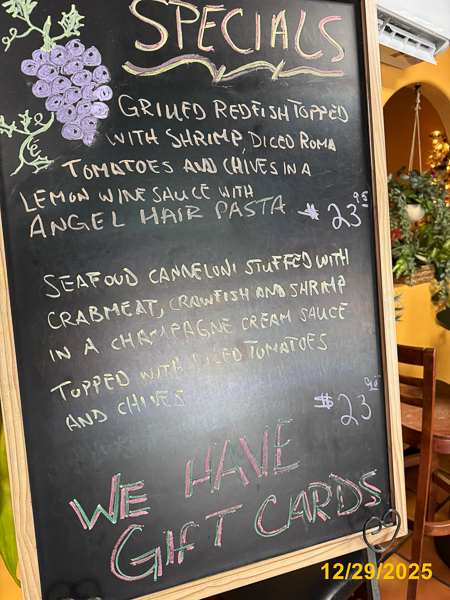 SPECIALS
GRILLED REDFISH TOPPED
WITH SHRIMP, DICED ROMA
TOMATOES AND CHIVES IN A
LEMON WINE SAUCE WITH
ANGEL HAIR PASTA $23.95
SEAFOOD CANNELONI STUFFED WITH
CRABMEAT, CRAWFISH AND SHRIMP
IN A CHAMPAGNE CREAM SAUCE
TOPPED WITH DICED TOMATOES
AND CHIVES
$23
WE HAVE
GIFT CARDS
12/29/2025